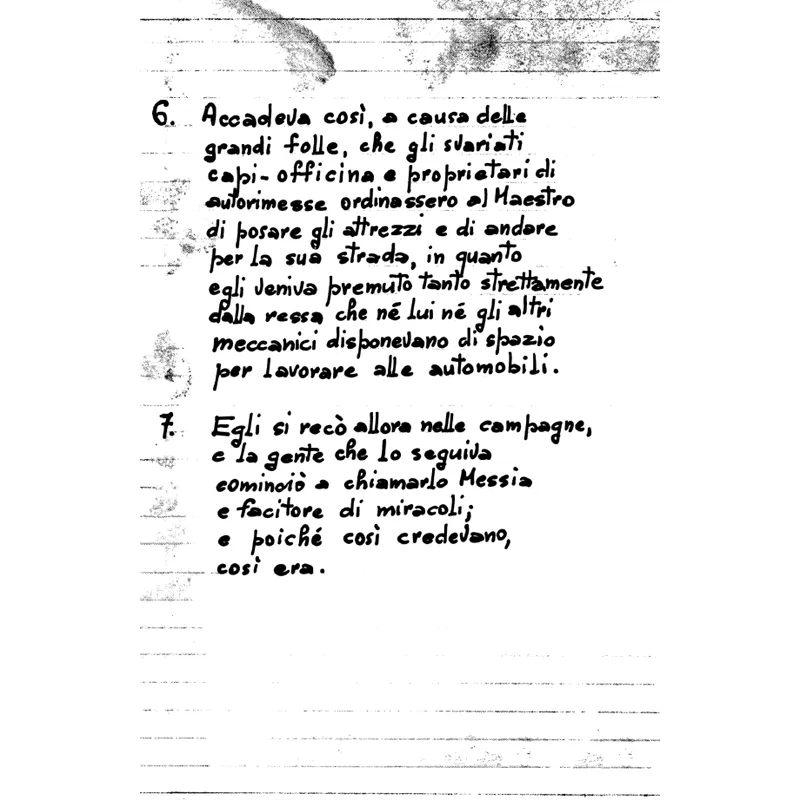 6. Accadeva così, a causa delle
grandi folle, che gli svariati
capi-officina e proprietari di
autorimesse ordinassero al Maestro
di posare gli attrezzi e di andare
per la sua strada, in quanto
egli veniva premuto tanto strettamente
dalla ressa che né lui né gli altri
meccanici disponevano di spazio
per lavorare alle automobili.
7. Egli si recò allora nelle campagne,
e la gente che lo seguiva
cominciò a chiamarlo Messia
e facitore di miracoli;
e poiché così credevano,
così era.